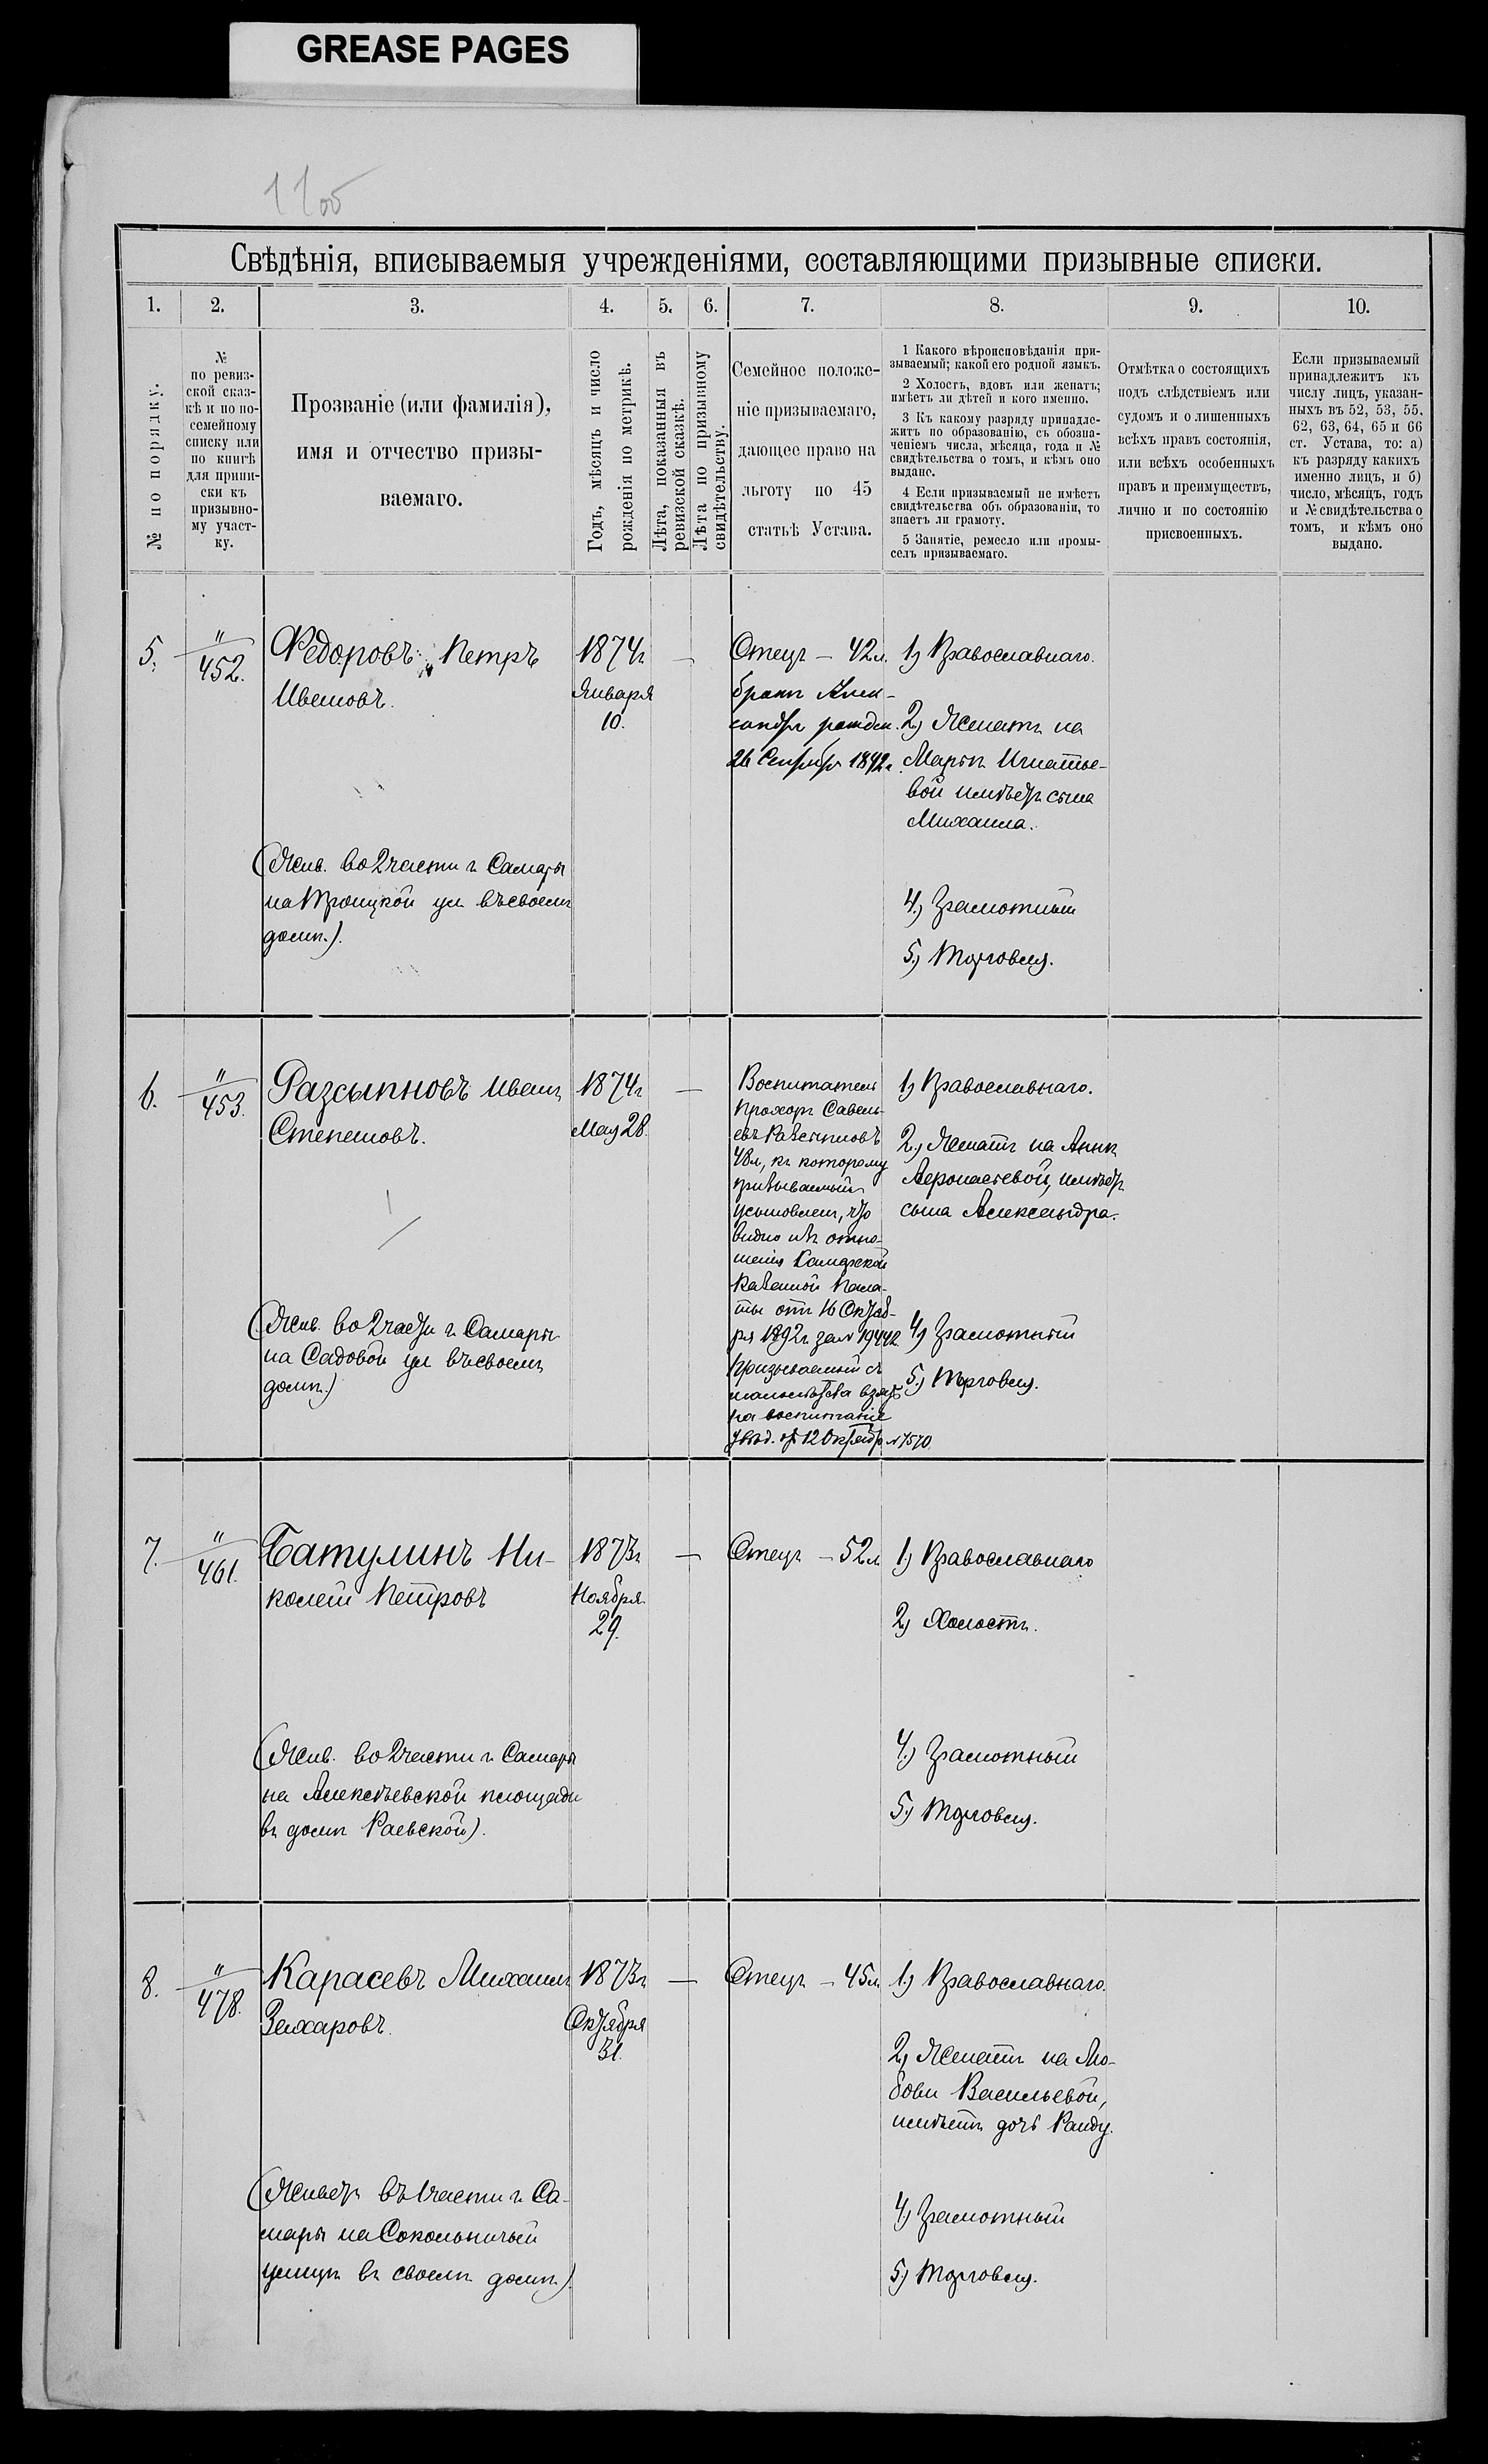 GREASE PAGES
11об
Свѣдѣнія, вписываемыя учрежденіями, составляющими призывные списки.
1.
2.
3.
4.
5.
6.
7.
8.
9.
10.
№ по порядку.
№
по ревиз-
ской сказ-
кѣ и по по-
семейному
списку или
по книгѣ
для припи-
ски къ
призывно-
му участ-
ку.
Прозваніе (или фамилія),
имя и отчество призы-
ваемаго.
Годъ, мѣсяцъ и число
рожденія по метрикѣ.
Лѣта, показанныя въ
ревизской сказкѣ.
Лѣта по призывному
свидѣтельству.
Семейное положе-
ніе призываемаго,
дающее право на
льготу по 45
статьѣ Устава.
1 Какого вѣроисповѣданія при-
зываемый; какой его родной языкъ.
2 Холостъ, вдовъ или женатъ;
имѣетъ ли дѣтей и кого именно.
3 Къ какому разряду принадле-
житъ по образованію, съ обозна-
ченіемъ числа, мѣсяца, года и №
свидѣтельства о томъ, и кѣмъ оно
выдано.
4 Если призываемый не имѣетъ
свидѣтельства объ образованіи, то
знаетъ ли грамоту.
5 Занятіе, ремесло или промы-
селъ призываемаго.
Отмѣтка о состоящихъ
подъ слѣдствіемъ или
судомъ и о лишенныхъ
всѣхъ правъ состоянія,
или всѣхъ особенныхъ
правъ и преимуществъ,
лично и по состоянію
присвоенныхъ.
Если призываемый
принадлежитъ къ
числу лицъ, указан-
ныхъ въ 52, 53, 55,
62, 63, 64, 65 и 66
ст. Устава, то: а)
къ разряду какихъ
именно лицъ, и б)
число, мѣсяцъ, годъ
и № свидѣтельства о
томъ, и кѣмъ оно
выдано.
5.
"
452.
Федоровъ Петръ
Ивановъ.
(Жив. во 2 части г. Самары
на Троицкой ул въ своемъ
домѣ.).
1874г
Января
10.
—
Отецъ – 42л.
братъ Алек-
сандръ рожден.
26 Сентября 1892г.
1) Православнаго.
2) Женатъ на
Марьѣ Игнатье-
вой имѣетъ сына
Михаила.
4.) Грамотный
5.) Торговля.
6.
"
453.
Разсыпновъ Иванъ
Степановъ.
(Жив. во 2 части г. Самары
на Садовой ул въ своемъ
домѣ.)
1874г
Мая 28.
—
Воспитатель
Прохоръ Савель-
евъ Разсыпновъ
48л, къ которому
призываемый
усыновленъ, что
видно изъ отно-
шенія Самарской
Казенной Пала-
ты отъ 16 Октяб-
ря 1892г за № 19442
Призываемый съ
малолѣтства взятъ
на воспитаніе
увѣд. отъ 12 Октября № 7570
1) Православнаго.
2) Женатъ на Аннѣ
имѣетъ
сына Александра.
4) Грамотный
5.) Торговля.
7.
"
461.
Батулинъ Ни-
колай Петровъ
(Жив. во 2 части г. Самары
на Алексѣевской площади
въ домѣ Раевской).
1873г
Ноября
29.
—
Отецъ – 52л
1.) Православнаго
2) Холостъ.
4.) Грамотный
5.) Торговля.
8.
"
478.
Карасевъ Михаилъ
Захаровъ.
(Живетъ въ 1 части г. Са-
мары на Сокольничьей
улицѣ въ своемъ домѣ.)
1873г
Октября
31.
—
Отецъ – 45л
1.) Православнаго.
2) Женатъ на Лю-
бови Васильевой,
имѣетъ дочь
4) Грамотный
5.) Торговля.